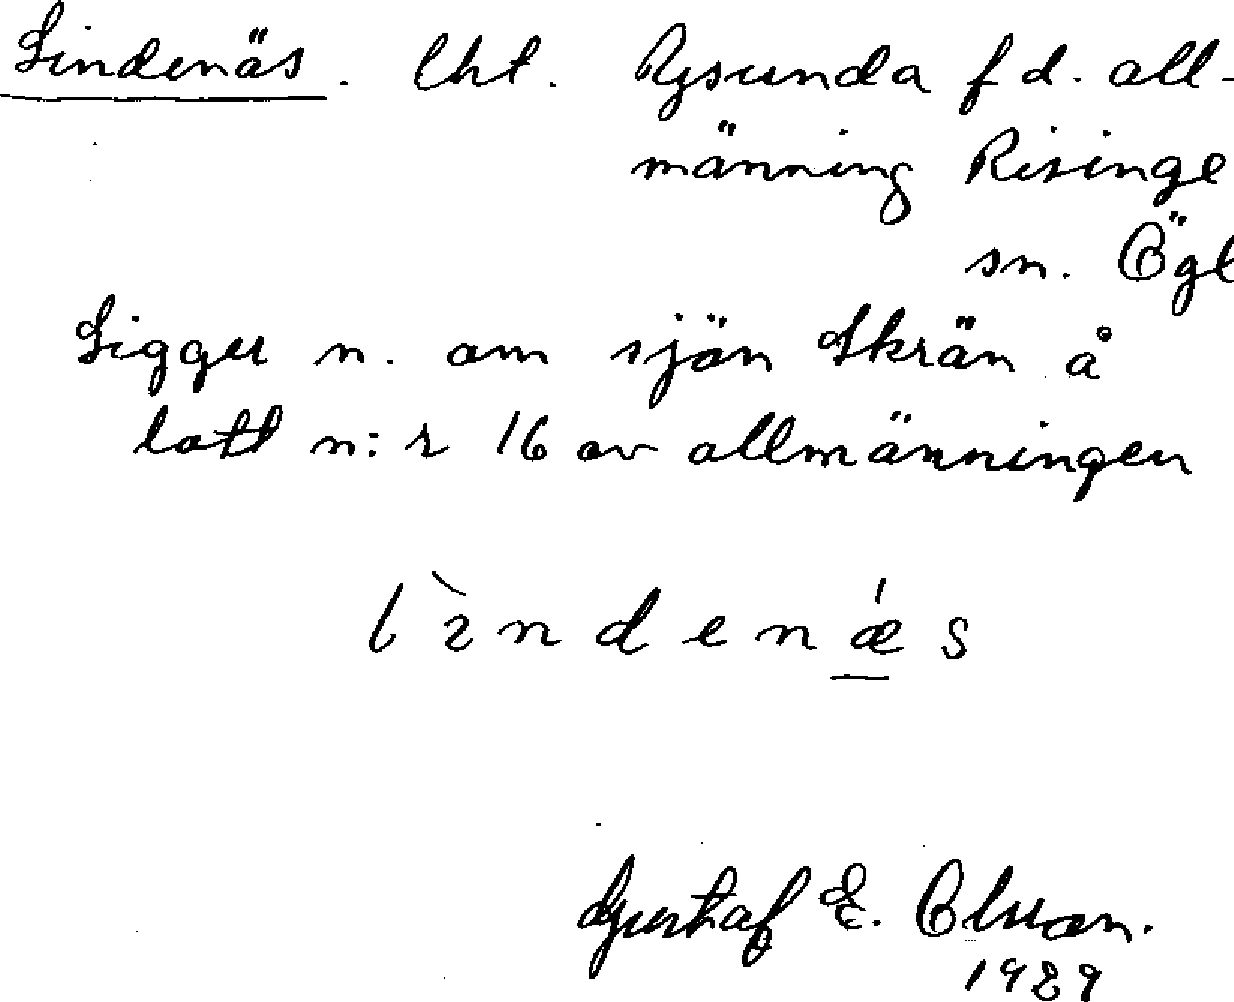 Lindenäs. lht. Rysunda f d. all-
männing Risinge
sn. Ögl
Ligger n. om sjön Skrän å
lott n:r 16 av allmänningen
lìndenǽs
Gustaf E. Olsson.
1929